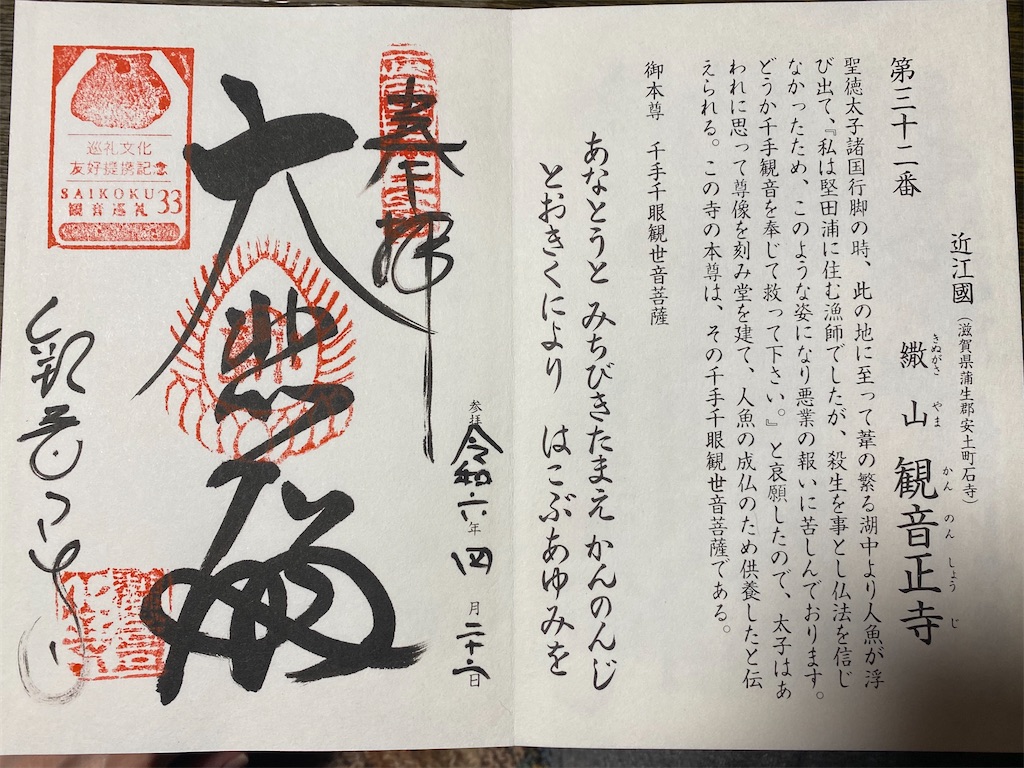 近江國（滋賀県蒲生郡安土町石寺）
第三十二番 繖山 観音正寺
きぬがさ やま かんのんしょうじ
聖徳太子諸国行脚の時、此の地に至って葦の繁る湖中より人魚が浮
び出て、『私は堅田浦に住む漁師でしたが、殺生を事とし仏法を信じ
なかったため、このような姿になり悪業の報いに苦しんでおります。
どうか千手観音を奉じて救って下さい。』と哀願したので、太子はあ
われに思って尊像を刻み堂を建て、人魚の成仏のため供養したと伝
えられる。この寺の本尊は、その千手千眼観世音菩薩である。
御本尊 千手千眼観世音菩薩
あなとうと みちびきたまえ かんのんじ
とおきくにより はこぶあゆみを
奉拝
参拝 令和六年 四月 二十六日
大悲殿
観音正寺
巡礼文化
友好提携記念
SAIKOKU
観音巡礼 33